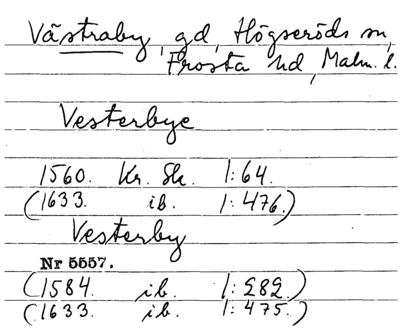 Västraby, gd, Högseröds sn,
Frosta hd, Malm. l.
Vesterbye
1560. Kr. Sk. 1:64.
(1633. ib. 1:476.)
Vesterby
Nr 5557.
(1584. ib. 1:282.)
(1633. ib. 1:475.)